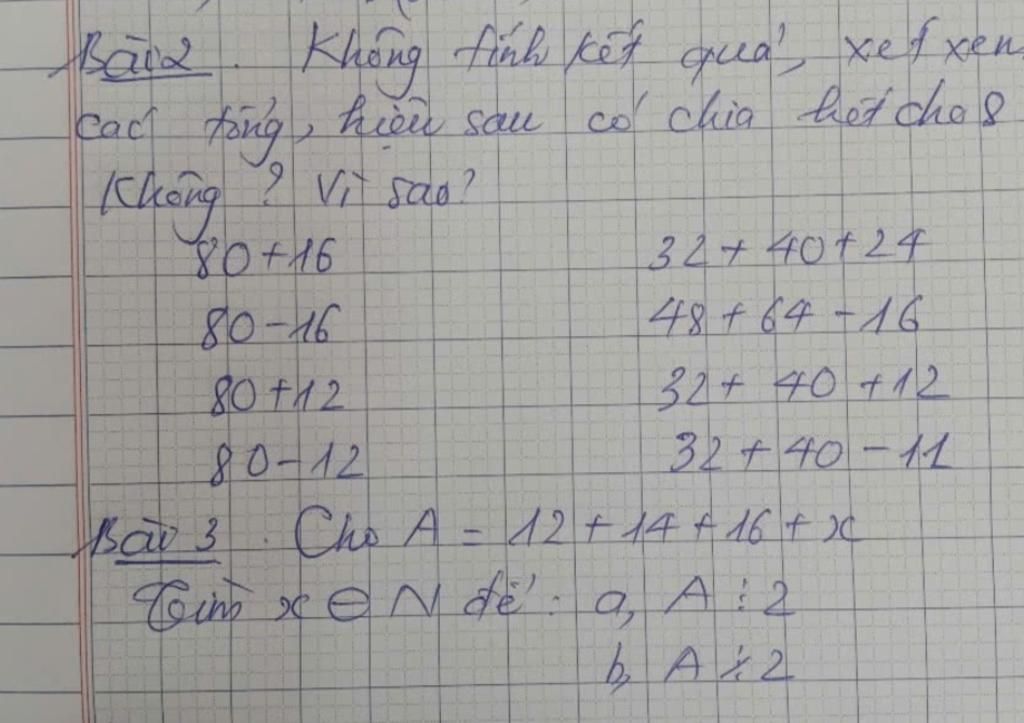 Bài 2. Không tính kết quả, xét xen
các tổng, hiệu sau có chia hết cho 8
Không? Vì sao?
80+16 32+40+24
80-16 48+64-16
80+12 32+40+12
80-12 32+40-11
Bài 3. Cho A = 12+14+16+x
Tìm x ∈ N để: a, A ⋮ 2
b, A ⋮̸ 2